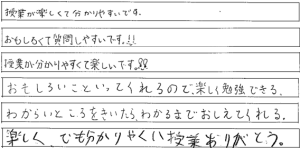 授業が楽しくて分かりやすいです。
おもしろくて質問しやすいです。!!
授業が分かりやすくて楽しいです。
おもしろいこといってくれるので、楽しく勉強できる。
わからいところをきいたら、わかるまでおしえてくれる。
楽しく、でも分かりやくい授業ありがとう。